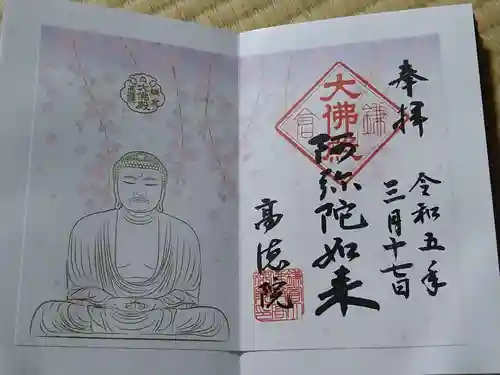 奉拝
令和五年
三月十七日
大佛殿
鎌倉
阿弥陀如来
高徳院
大佛殿